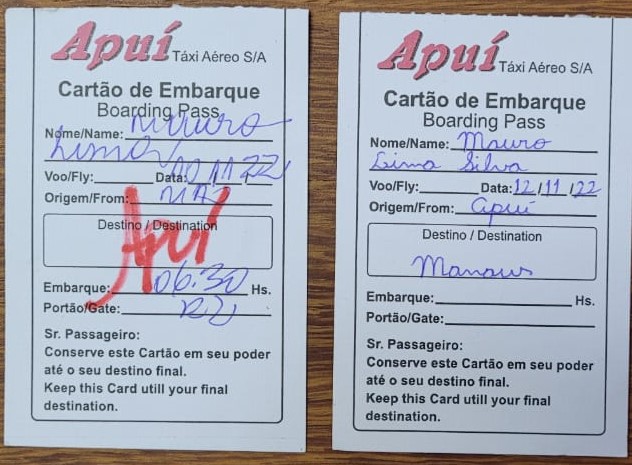 Apuí Táxi Aéreo S/A
Cartão de Embarque
Boarding Pass
Nome/Name: Mauro
Lima
Voo/Fly: Data: 10/11/22
Origem/From: MAO
Destino / Destination
Apuí
Embarque: 06:30 Hs.
Portão/Gate:
Sr. Passageiro:
Conserve este Cartão em seu poder
até o seu destino final.
Keep this Card utill your final
destination.
Apuí Táxi Aéreo S/A
Cartão de Embarque
Boarding Pass
Nome/Name: Mauro
Lima Silva
Voo/Fly: Data: 12/11/22
Origem/From: Apuí
Destino / Destination
Manaus
Embarque: Hs.
Portão/Gate:
Sr. Passageiro:
Conserve este Cartão em seu poder
até o seu destino final.
Keep this Card utill your final
destination.